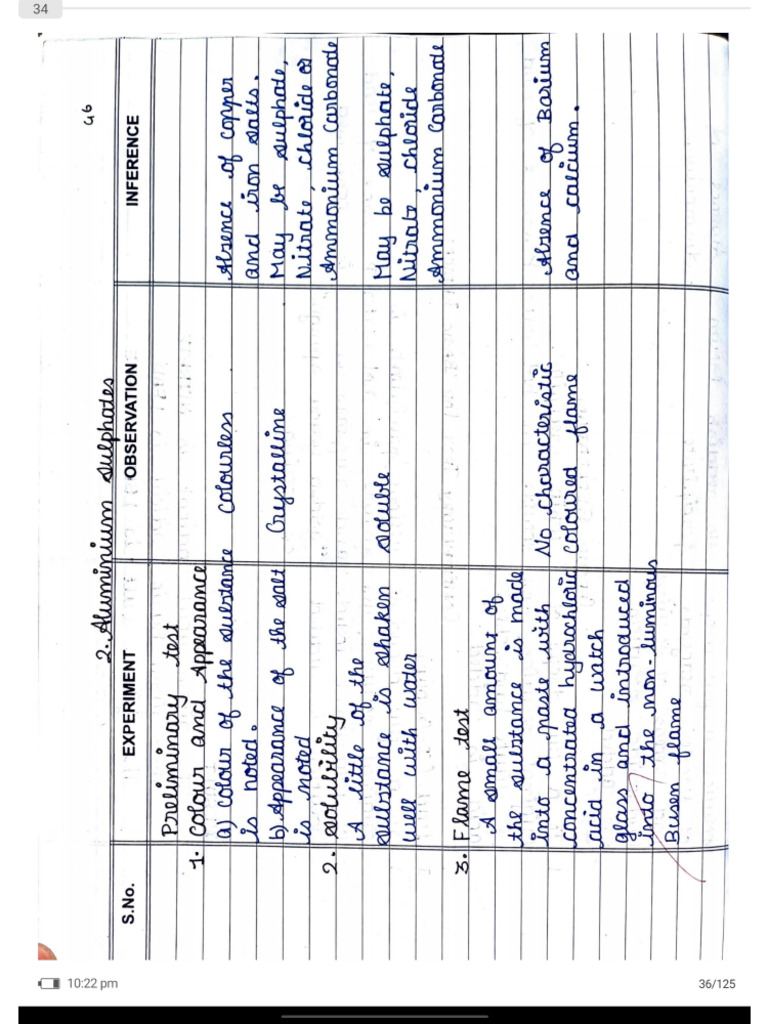 34
2. Aluminium sulphates
S.No. EXPERIMENT OBSERVATION INFERENCE
Preliminary test
1. Colour and Appearance
a) Colour of the substance colourless Absence of copper
is noted. and iron salts.
b) Appearance of the salt Crystalline May be sulphate,
is noted Nitrate, chloride or
2. solubility Ammonium Carbonate
A little of the
substance is shaken soluble May be sulphate,
well with water Nitrate, chloride
Ammonium Carbonate
3. Flame test
A small amount of
the substance is made
into a paste with No characteristic Absence of Barium
concentrated hydrochloric coloured flame and calcium.
acid in a watch
glass and introduced
into the non-luminous
Busen flame
10:22 pm
36/125